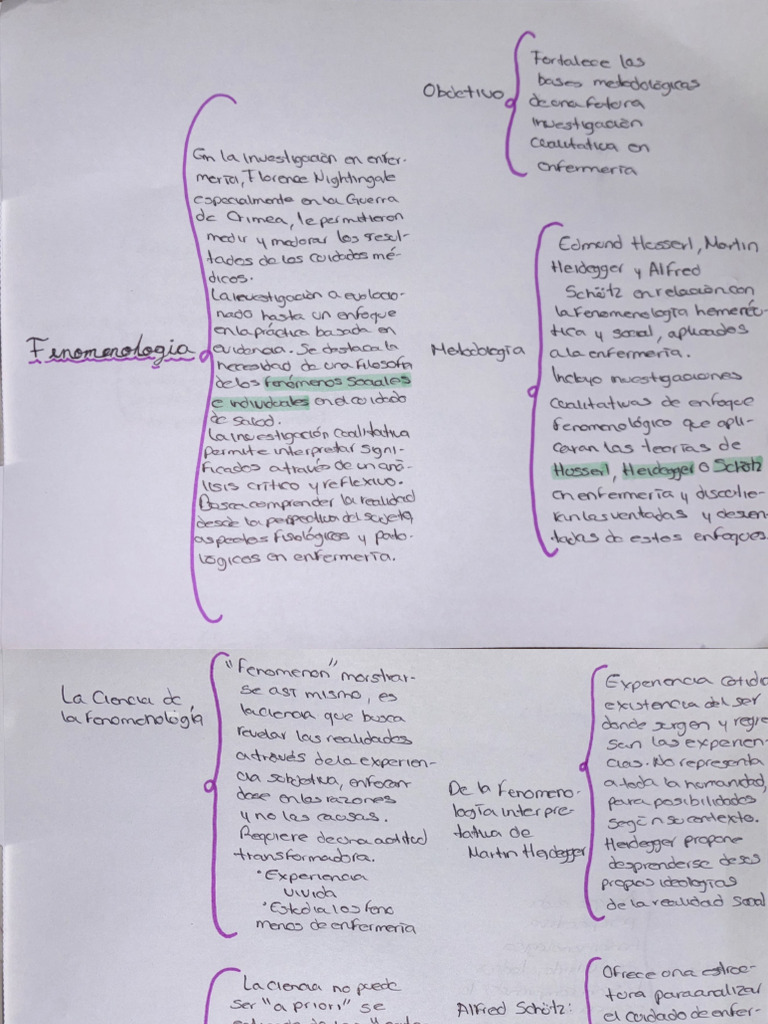 Fenomenología
En la investigación en enfer-
mería, Florence Nightingale
especialmente en la Guerra
de Crimea, le permitieron
medir y mejorar los resul-
tados de los cuidados mé-
dicos.
La investigación a evolucio-
nado hasta un enfoque
en la práctica basada en
evidencia. Se destaca la
necesidad de una filosofía
de los fenómenos sociales
e individuales en el cuidado
de salud.
La investigación cualitativa
permite interpretar signi-
ficados a través de un aná-
lisis crítico y reflexivo.
Busca comprender la realidad
desde la perspectiva del sujeto,
aspectos fisiológicos y pato-
lógicos en enfermería.
Objetivo
Fortalece las
bases metodológicas
de una futura
investigación
cualitativa en
enfermería
Metodología
Edmund Husserl, Martin
Heidegger y Alfred
Schötz en relación con
la fenomenología hermenéu-
tica y social, aplicados
a la enfermería.
Incluyo investigaciones
cualitativas de enfoque
fenomenológico que apli-
caran las teorías de
Husserl, Heidegger o Schötz
en enfermería y discutie-
ran las ventadas y desven-
tadas de estos enfoques.
La Ciencia de
la fenomenología
"Fenomenon" morstrar-
se así mismo, es
la ciencia que busca
revelar las realidades
a través de la experien-
cia subjetiva, enfocan
dose en las razones
y no las causas.
Requiere de una actitud
transformadora.
•Experiencia
vivida
•Estudia los fenó
menos de enfermería
De la fenomeno-
logía interpre-
tativa de
Martin Heidegger
Experiencia cotid
existencia del ser
donde surgen y regre
san las experien-
cias. No representa
a toda la humanidad,
para posibilidades
según su contexto.
Heidegger propone
desprenderse de sus
propias ideologías
de la realidad social
La ciencia no puede
ser "a priori" se
Alfred Schötz:
Ofrece una estruc-
tura para analizar
el cuidado de enfer-